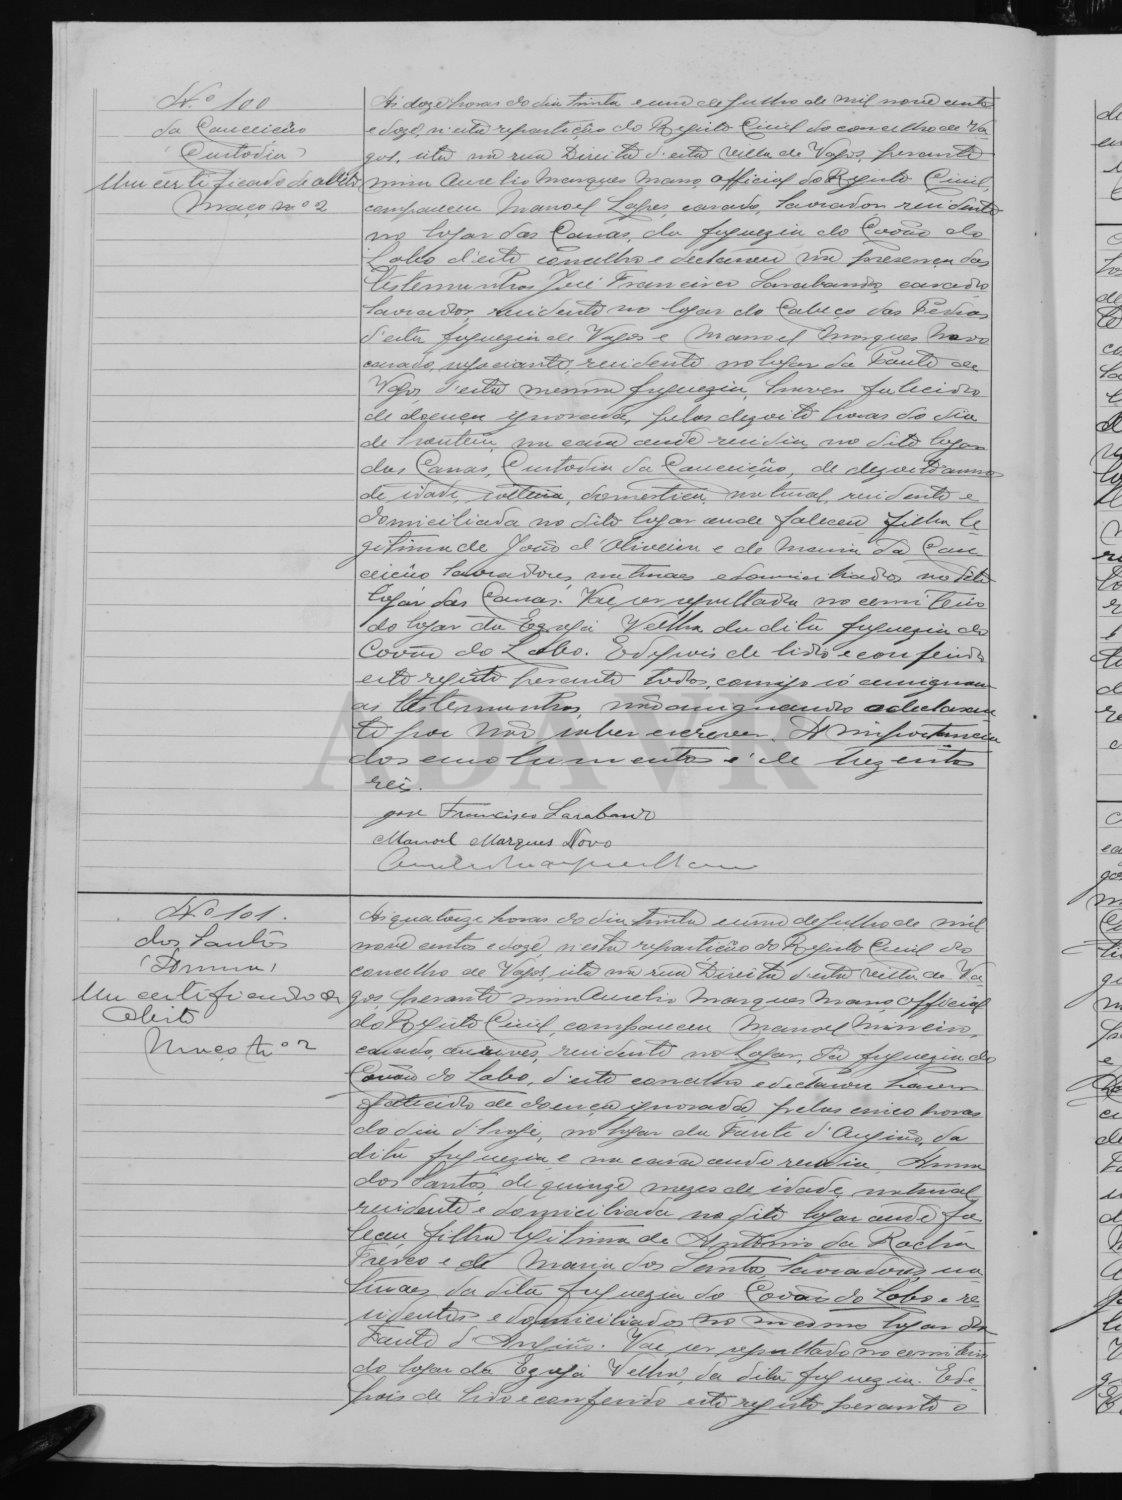 N.º 100
da Conceição
(Custodia)
Um certificado de obito
Maço nº 2
Ás doze horas do dia trinta e um de Julho de mil nove centos
e doze, n'esta repartição do Registo Civil do concelho de Va-
gos, sita na rua Direita d'esta villa de Vagos, perante
mim Aurelio Marques Mano, official do Registo Civil,
compareceu Manoel Lopes, casado, lavrador, residente
no logar das Canas, da freguezia do Covão do
Lobo d'este concelho e declarou na presença das
testemunhas José Francisco Sarabando, casado
lavrador, residente no logar do Cabeço das Pedras
d'esta freguezia de Vagos e Manoel Marques Novo
casado, negociante, residente no logar da Fonte de
Vagos, d'esta mesma freguezia, haver fallecido
de doença ignorada, pelas dezoito horas do dia
de hontem, na casa onde residia, no dito logar
das Canas, Custodia da Conceição, de dezoito annos
de idade, solteira, domestica, natural, residente e
domiciliada no dito logar onde faleceu filha le-
gitima de João d'Oliveira e de Maria da Con-
ceição lavradores, naturaes e domiciliados no dito
logar das Canas. Vae ser sepultada no cemiterio
do logar da Egreja Velha da dita freguezia do
Covão do Lobo. E depois de lido e conferido
este registo perante todos, comigo só assignam
as testemunhas, não assignando o declaran-
te por não saber escrever. A importancia
dos emolumentos é de trezentos
reis.
José Francisco Sarabando
Manoel Marques Novo
Aurelio Marques Mano
N.º 101.
dos Santos
(Anna)
Um certificado de
obito
Maço nº 2
Ás quatorze horas do dia trinta e um de Julho de mil
nove centos e doze, n'esta repartição do Registo Civil do
concelho de Vagos, sita na rua Direita d'esta villa de Va-
gos, perante mim Aurelio Marques Mano, official
do Registo Civil, compareceu Manoel
casado, ourives, residente no logar, da freguezia do
Covão do Lobo, d'este concelho e declarou haver
fallecido de doença ignorada, pelas cinco horas
do dia d'hoje, no logar da Fonte d'Angião, da
dita freguezia e na casa onde residia, Anna
dos Santos, de quinze mezes de idade, natural,
residente e domiciliada no dito logar onde fa-
leceu filha legitima de Antonio da Rocha
e de Maria dos Santos, lavradores, na-
turaes da dita freguezia do Covão do Lobo e re-
sidentes e domiciliados no mesmo logar da
Fonte d'Angião. Vae ser sepultado no cemiterio
do logar da Egreja Velha, da dita freguezia. E de-
pois de lido e conferido este registo perante o
ADAVR